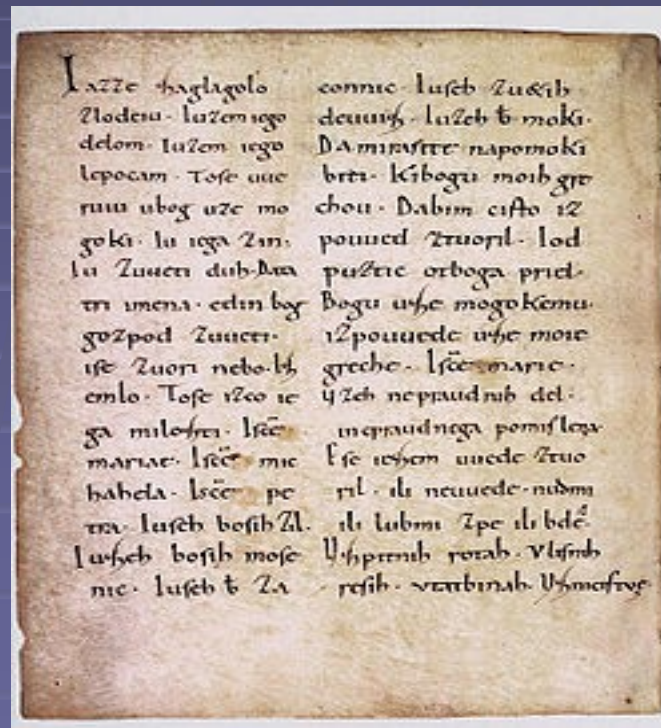 Iazze zaglagolo
zlodeiu. Iuzem iego
delom. Iuzem iego
lepocam. Tose uue
ruiu ubog uze mo
goki. Iu iega zin.
Iu zuueti duh. Data
tri imena. edin bog
gozpod zuueti.
ise zuori nebo. Iz
emlo. Tose izco ie
ga milozti. Iscẽ
mariae. Iscẽ mic
hahela. Iscẽ pe
tra. Iuseh bosih zil.
Iuzeh bosih mose
nic. Iuseh ƀ za
connic. Iuseh zuetih
deuuiz. Iuzeh ƀ moki.
Da mi rasite napomoki
biti. Kibogu moih gre
chou. Dabim cisto iz
pouued ztuoril. Iod
puztic otboga priel.
Bogu uze mogokemu.
izpouuede uze moie
greche. Iscẽ marie.
uzeh nepraudnih del.
inepraudnega pomislena.
Ese iezem uuede ztuo
ril. ili neuuede. nudmi
ili lubmi zpe ili bdẽ.
Uzpitnih rotah. Vlisnih
resih. vtatbinah. Uznicistuę.